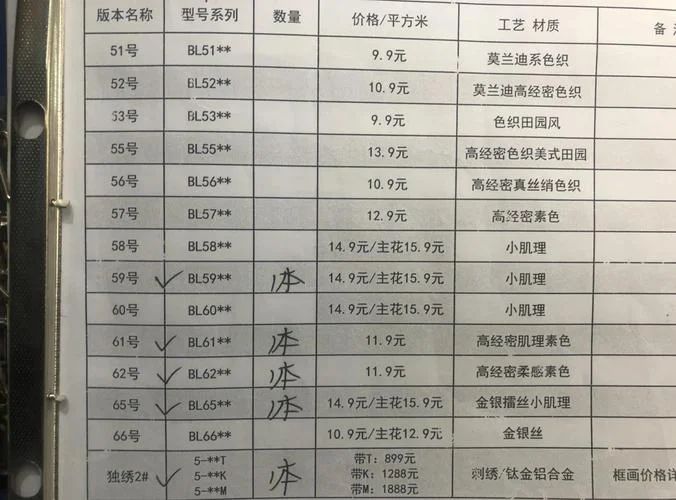 版本名称 型号系列 数量 价格/平方米 工艺 材质 备
51号 BL51** 9.9元 莫兰迪系色织
52号 BL52** 10.9元 莫兰迪高经密色织
53号 BL53** 9.9元 色织田园风
55号 BL55** 13.9元 高经密色织美式田园
56号 BL56** 10.9元 高经密真丝绡色织
57号 BL57** 12.9元 高经密素色
58号 BL58** 14.9元/主花15.9元 小肌理
59号 ✓ BL59** 1本 14.9元/主花15.9元 小肌理
60号 BL60** 14.9元/主花15.9元 小肌理
61号 ✓ BL61** 1本 11.9元 高经密肌理素色
62号 ✓ BL62** 1本 11.9元 高经密柔感素色
65号 ✓ BL65** 1本 14.9元/主花15.9元 金银擂丝小肌理
66号 BL66** 10.9元/主花12.9元 金银丝
5-**T 带T: 899元
独绣2# ✓ 5-**K 1本 带K: 1288元 刺绣/钛金铝合金 框画价格详
5-**M 带M: 1888元